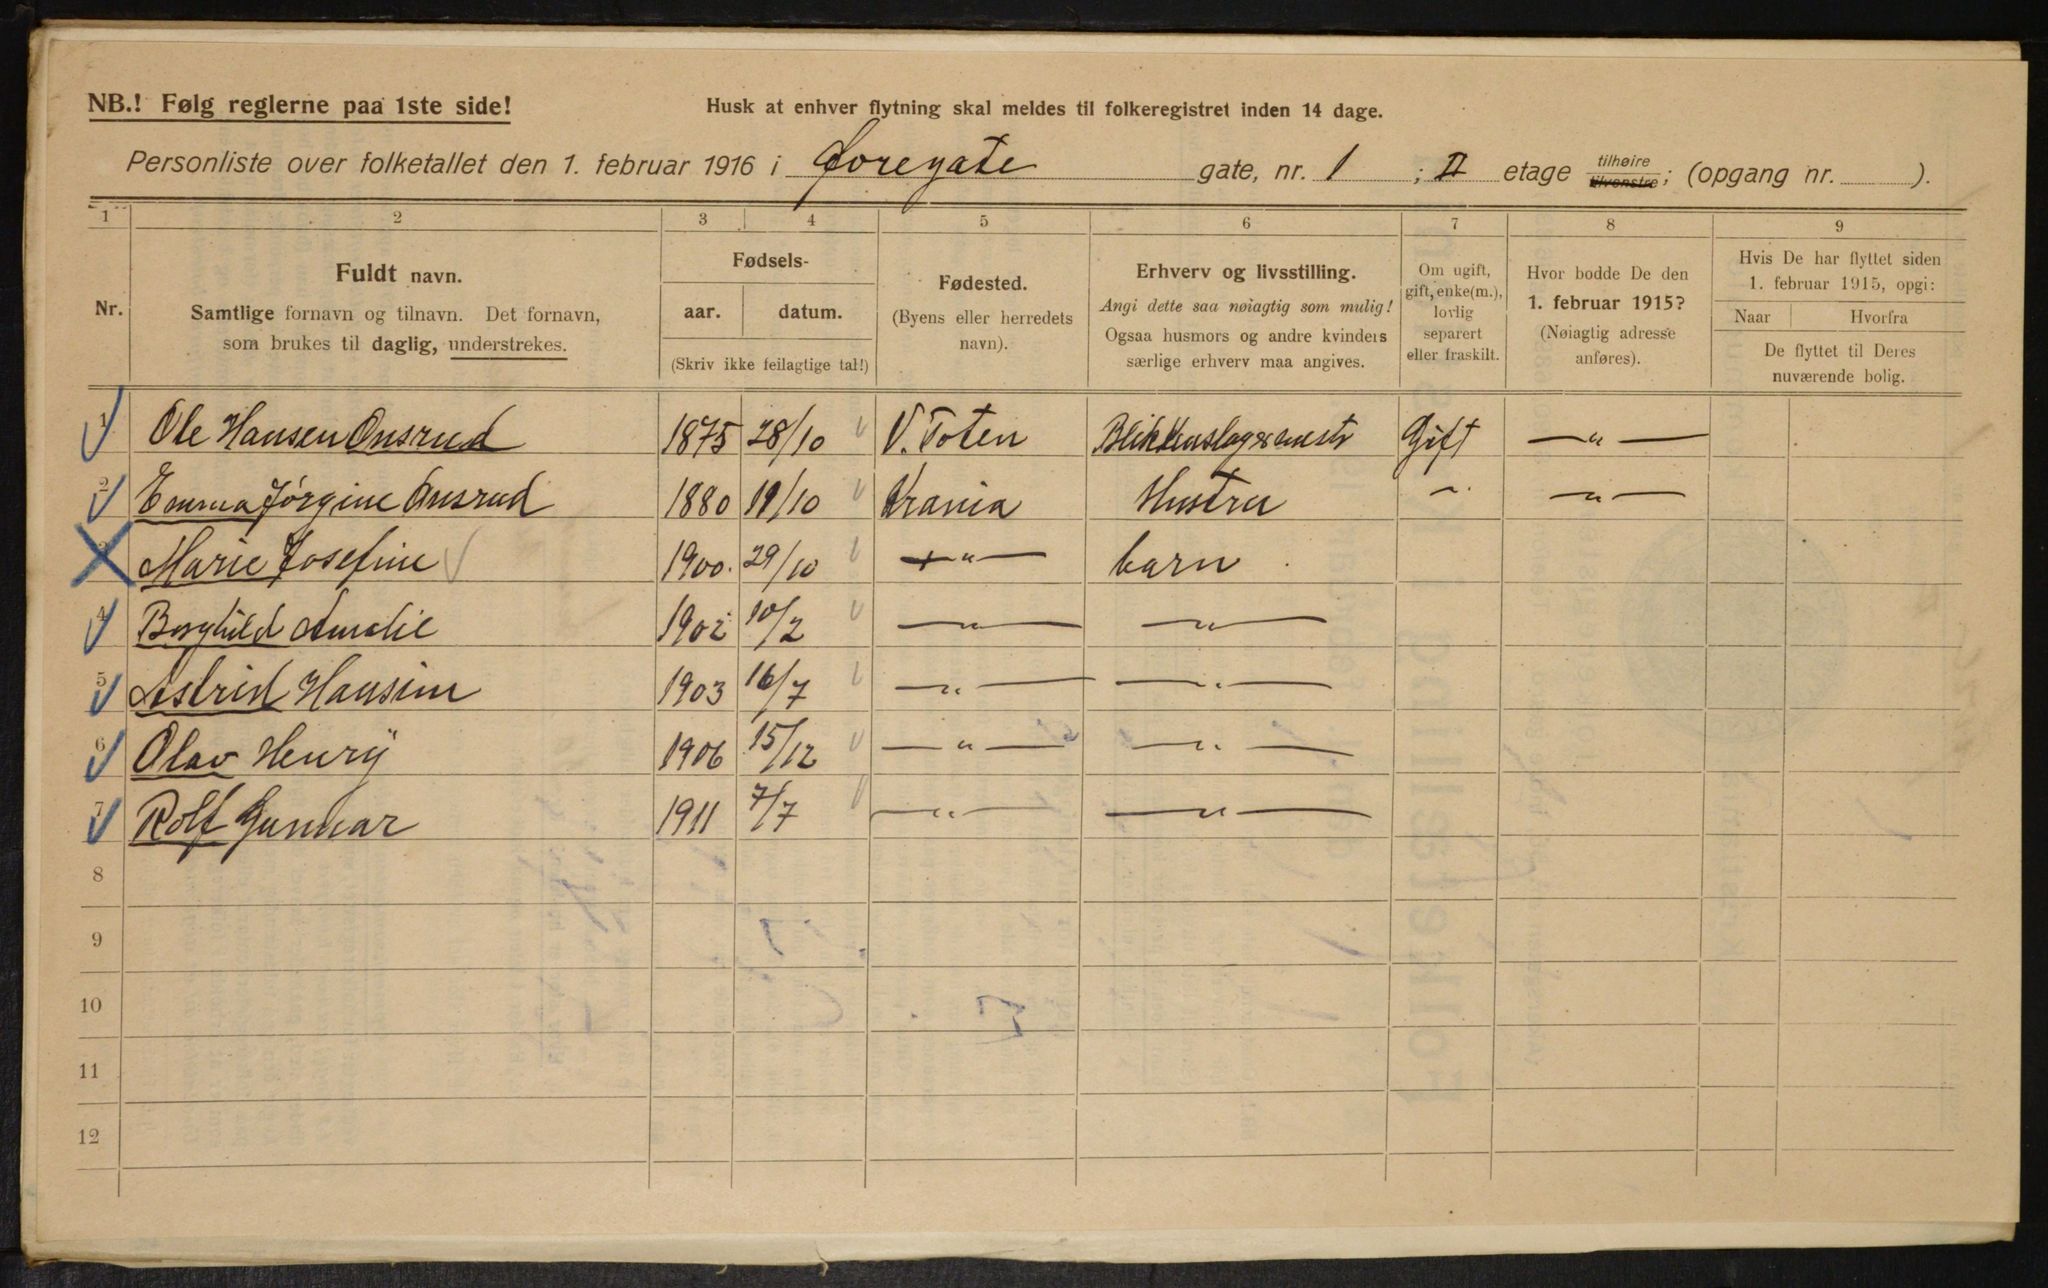 NB.! Følg reglerne paa 1ste side!
Husk at enhver flytning skal meldes til folkeregistret inden 14 dage.
Personliste over folketallet den 1. februar 1916 i Joregate gate, nr. 1 ; II etage tilhøire tilvenstre; (opgang nr. ).
1 2 3 4 5 6 7 8 9
Nr.
Fuldt navn.
Samtlige fornavn og tilnavn. Det fornavn,
som brukes til daglig, understrekes.
Fødsels-
aar. datum.
(Skriv ikke feilagtige tal!)
Fødested.
(Byens eller herredets
navn).
Erhverv og livsstilling.
Angi dette saa nøiagtig som mulig!
Ogsaa husmors og andre kvinders
særlige erhverv maa angives.
Om ugift,
gift, enke(m.),
lovlig
separert
eller fraskilt.
Hvor bodde De den
1. februar 1915?
(Nøiagtig adresse
anføres).
Hvis De har flyttet siden
1. februar 1915, opgi:
Naar Hvorfra
De flyttet til Deres
nuværende bolig.
1 Ole Hansen Onsrud 1875 28/10 V. Toten Blikkenslagermestr Gift —"—
2 Emma Jørgine Onsrud 1880 19/10 Krania Hustru " —"—
3 Marie Josefine 1900. 29/10 —"— barn
4 Borghild Amalie 1902 10/2 —"— —"—
5 Astrid Hansine 1903 16/7 —"— —"—
6 Olav Henry 1906 15/12 —"— —"—
7 Rolf Gunnar 1911 7/7 —"— —"—
8
9
10
11
12